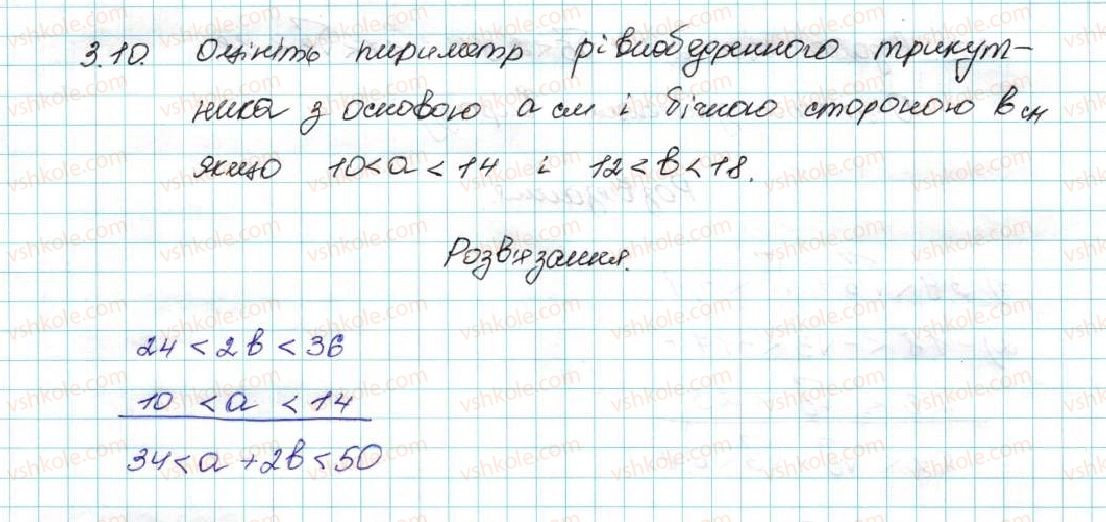 3.10. Оцініть пириметр рівнобедренного трикут-
ника з основою a см і бічною стороною b см
якщо 10 < a < 14 і 12 < b < 18.
Розв'язання.
24 < 2b < 36
10 < a < 14
34 < a + 2b < 50